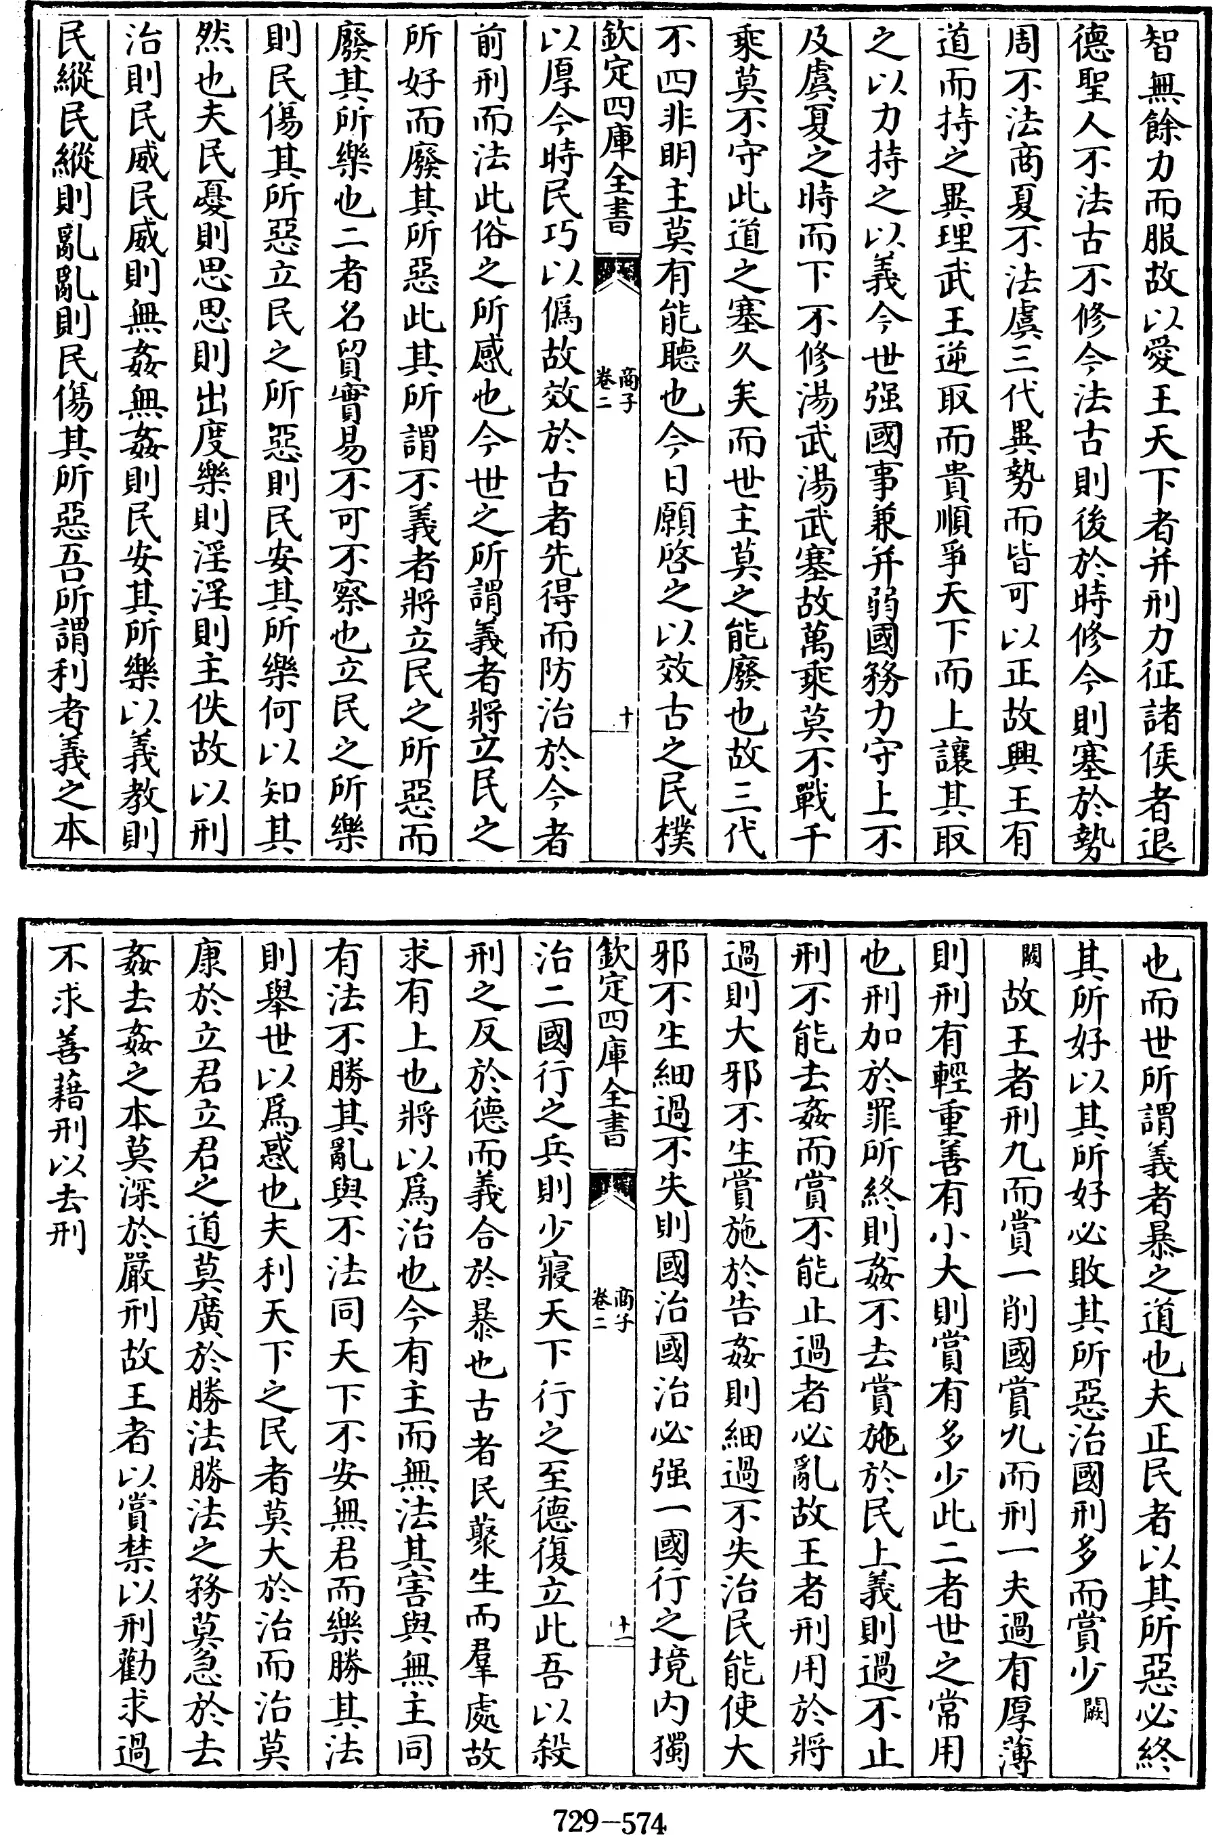 智無餘力而服故以愛王天下者并刑力征諸侯者退
德聖人不法古不修今法古則後於時修今則塞於勢
周不法商夏不法虞三代異勢而皆可以正故興王有
道而持之異理武王逆取而貴順爭天下而上讓其取
之以力持之以義今世强國事兼并弱國務力守上不
及虞夏之時而下不修湯武湯武塞故萬乘莫不戰千
乘莫不守此道之塞久矣而世主莫之能廢也故三代
不四非明主莫有能聽也今日願啓之以效古之民樸
欽定四庫全書
商子
卷二
十
以厚今時民巧以僞故效於古者先得而防治於今者
前刑而法此俗之所惑也今世之所謂義者將立民之
所好而廢其所惡此其所謂不義者將立民之所惡而
廢其所樂也二者名貿實易不可不察也立民之所樂
則民傷其所惡立民之所惡則民安其所樂何以知其
然也夫民憂則思思則出度樂則淫淫則主佚故以刑
治則民威民威則無姦無姦則民安其所樂以義教則
民縱民縱則亂亂則民傷其所惡吾所謂利者義之本
也而世所謂義者暴之道也夫正民者以其所惡必終
其所好以其所好必敗其所惡治國刑多而賞少闕
闕故王者刑九而賞一削國賞九而刑一夫過有厚薄
則刑有輕重善有小大則賞有多少此二者世之常用
也刑加於罪所終則姦不去賞施於民上義則過不止
刑不能去姦而賞不能止過者必亂故王者刑用於將
過則大邪不生賞施於告姦則細過不失治民能使大
邪不生細過不失則國治國治必强一國行之境内獨
欽定四庫全書
商子
卷二
十一
治二國行之兵則少寢天下行之至德復立此吾以殺
刑之反於德而義合於暴也古者民藂生而羣處故
求有上也將以爲治也今有主而無法其害與無主同
有法不勝其亂與不法同天下不安無君而樂勝其法
則舉世以爲惑也夫利天下之民者莫大於治而治莫
康於立君立君之道莫廣於勝法勝法之務莫急於去
姦去姦之本莫深於嚴刑故王者以賞禁以刑勸求過
不求善藉刑以去刑
729-574